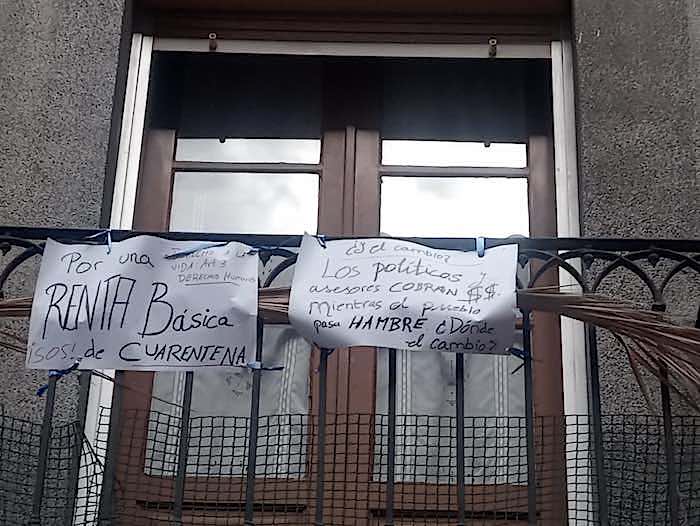 Por una
DERECHO A LA
VIDA Art 3
DERECHOS Humanos
RENTA Básica
¡SOS! de CUARENTENA
¿Y el cambio?
Los políticos y
asesores COBRAN $$.
mientras el pueblo
pasa HAMBRE ¿Dónde
el cambio?